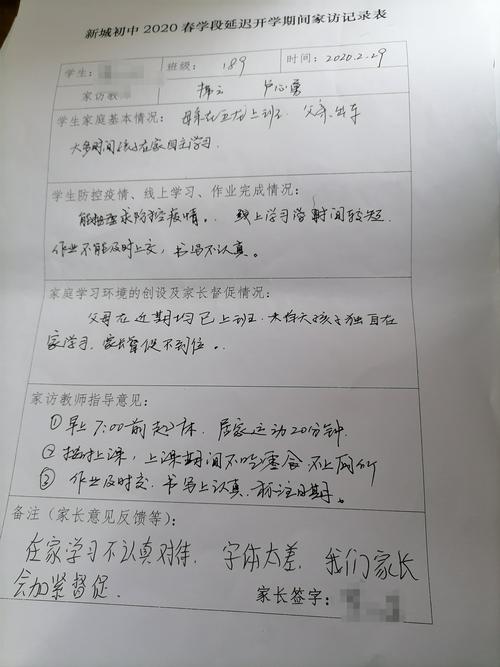 新城初中 2020 春学段延迟开学期间家访记录表
学生： 班级： 189 时间： 2020.2.29
家访教师
学生家庭基本情况： 母亲在五龙上班， 父亲出车
大多时间孩子在家自主学习.
学生防控疫情、线上学习、作业完成情况：
能按要求防控疫情。. 线上学习学时间较短.
作业不能及时上交，书写不认真。
家庭学习环境的创设及家长督促情况：
父母在近期均已上班. 大孩子独自在
家学习. 家长督促不到位。.
家访教师指导意见：
①早上 7:00前起床. 居家运动20分钟.
②按时上课，上课期间不吃零食. 不上网
③ 作业及时交. 书写上认真. 标注日期。
备注（家长意见反馈等）：
在家学习不认真对待. 字体太差. 我们家长
会加紧督促.
家长签字：